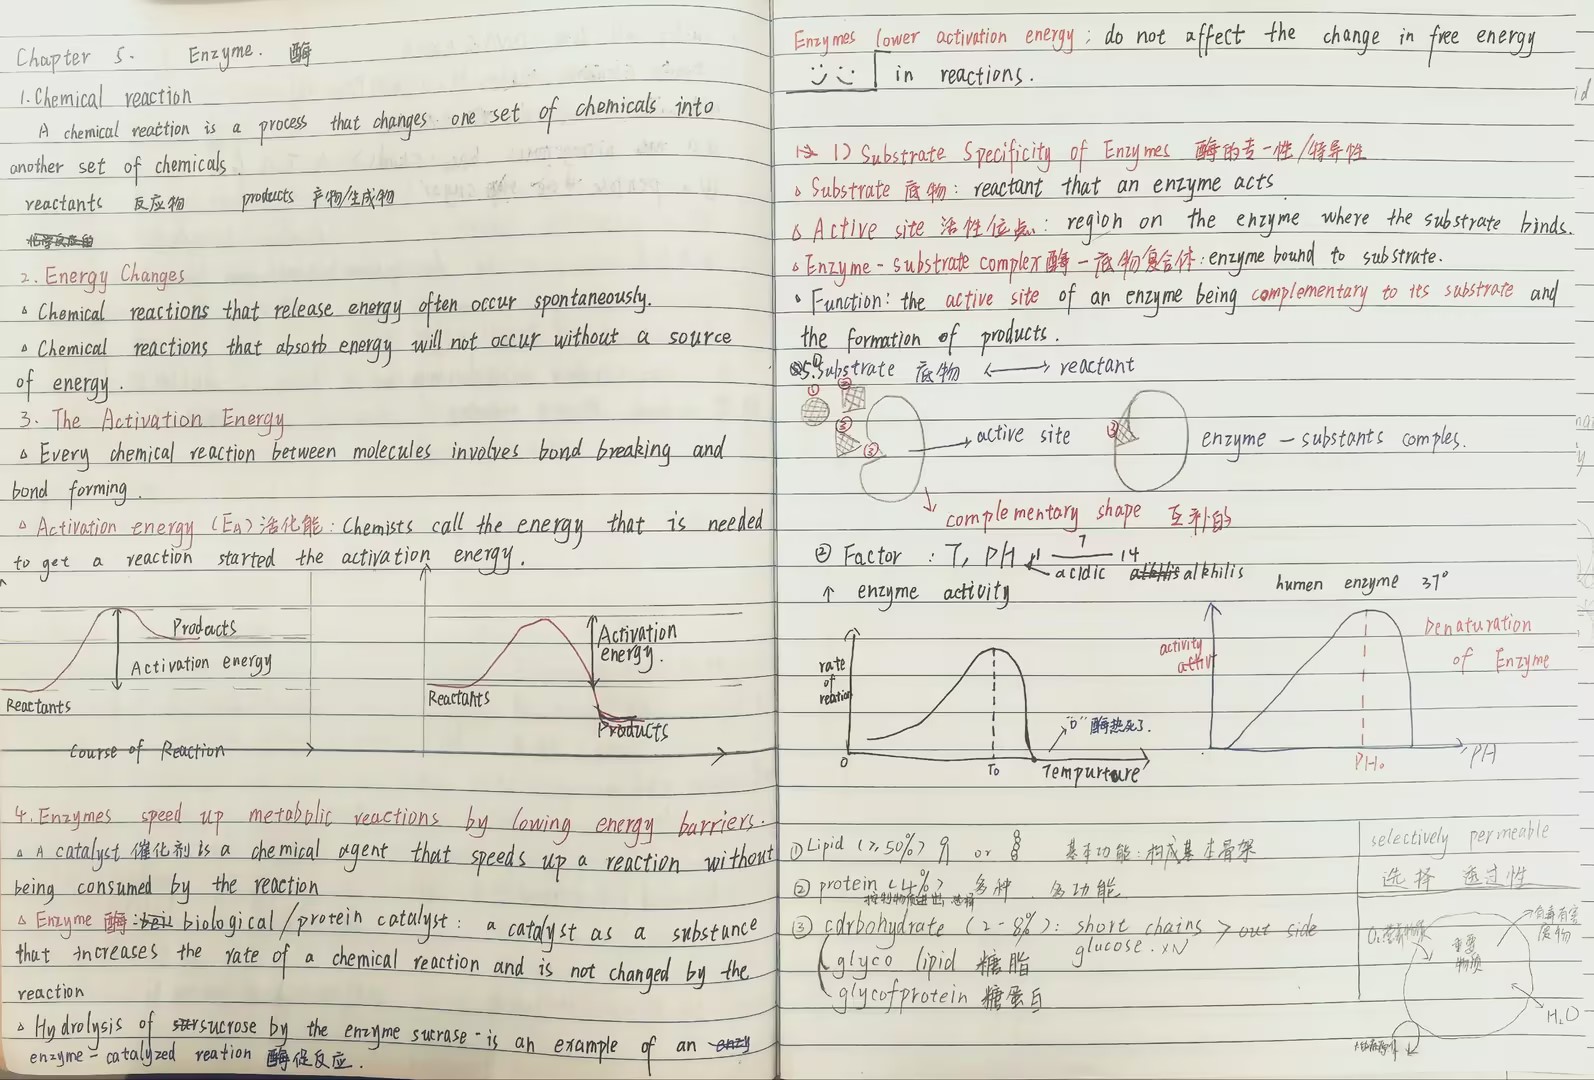 Chapter 5. Enzyme. 酶
1. Chemical reaction
A chemical reaction is a process that changes one set of chemicals into
another set of chemicals.
reactants 反应物 products 产物/生成物
2. Energy Changes
△ Chemical reactions that release energy often occur spontaneously.
△ Chemical reactions that absorb energy will not occur without a source
of energy.
3. The Activation Energy
△ Every chemical reaction between molecules involves bond breaking and
bond forming.
△ Activation energy (EA) 活化能: Chemists call the energy that is needed
to get a reaction started the activation energy.
Products
Activation energy
Reactants
Activation
energy.
Reactants
Products
Course of Reaction
4. Enzymes speed up metabolic reactions by lowing energy barriers.
△ A catalyst 催化剂 is a chemical agent that speeds up a reaction without
being consumed by the reaction
△ Enzyme 酶: biological/protein catalyst: a catalyst as a substance
that increases the rate of a chemical reaction and is not changed by the
reaction
△ Hydrolysis of sucrose by the enzyme sucrase - is an example of an
enzyme - catalyzed reation 酶促反应.
Enzymes lower activation energy; do not affect the change in free energy
in reactions.
1) Substrate Specificity of Enzymes 酶的专一性/特异性
△ Substrate 底物: reactant that an enzyme acts
△ Active site 活性位点: region on the enzyme where the substrate binds.
△ Enzyme - substrate complex 酶-底物复合体: enzyme bound to substrate.
△ Function: the active site of an enzyme being complementary to its substrate and
the formation of products.
Substrate 底物 ⟷ reactant
① ② ③ ③
active site
③
enzyme - substants comples.
complementary shape 互补的
② Factor: T, PH 1 7 14
acidic alkhilis
↑ enzyme activity
humen enzyme 37°
rate
of
reation
0 T₀ Tempurture
"0" 酶热死了.
activity
Denaturation
of Enzyme
PH₀ PH
① Lipid (≥50%) or 基本功能: 构成基本骨架
② protein (4%) 多种 多功能
③ carbohydrate (2-8%): short chains > out side
glucose. ×N
glyco lipid 糖脂
glycofprotein 糖蛋白
selectively permeable
选择 透过性
O₂
重要
物质
有毒有害
废物
H₂O